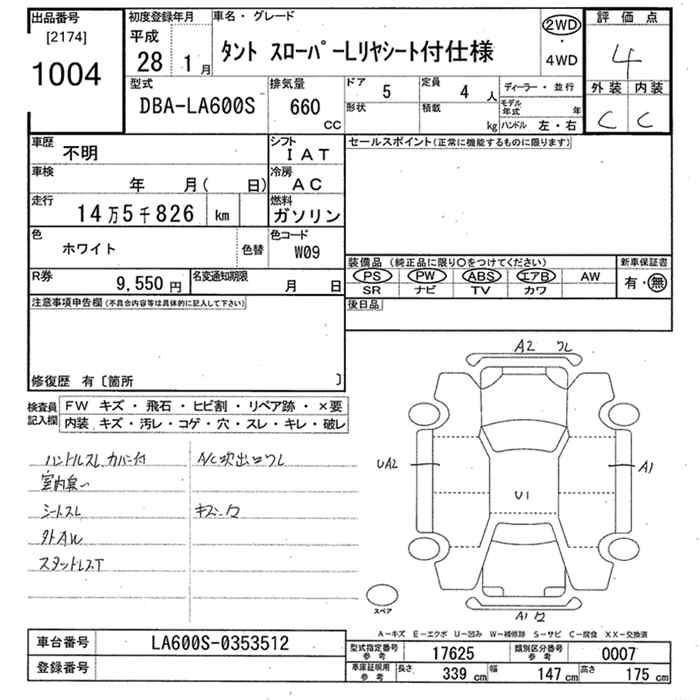 出品番号
[2174]
1004
初度登録年月
平成
28 1月
車名・グレード
タント スローパーLリヤシート付仕様
2WD
・
4WD
評価点
4
外装 内装
C C
型式
DBA-LA600S
排気量
660
CC
ドア 5
定員 4 人
形状
積載 kg
ディーラー・並行
モデル年式 年
ハンドル 左・右
車歴 不明
シフト
IAT
車検 年 月( 日)
冷房
AC
走行 14万5千826 km
燃料
ガソリン
色 ホワイト 色替
色コード
W09
R券 9,550円
名変通知期限 月 日
セールスポイント(正常に機能するものに限ります)
装備品 (純正品に限り○をつけてください)
新車保証書
PS PW ABS エアB AW
SR ナビ TV カワ
有・無
後日品
注意事項申告欄(不具合内容等は具体的に記入して下さい)
修復歴 有〔箇所 〕
検査員
記入欄
FW キズ・飛石・ヒビ割・リペア跡・×要
内装 キズ・汚レ・コゲ・穴・スレ・キレ・破レ
ハンドルスレ カバー付
A/C吹出口ワレ
室内臭い
シートスレ
外AW
スタッドレスT
A2 ワレ
UA2
A1
U1
A1
スペア
A-キズ E-エクボ U-凹み W-補修跡 S-サビ C-腐食 XX-交換済
車台番号 LA600S-0353512
登録番号
型式指定番号
参考
17625
類別区分番号
参考
0007
車庫証明用
参考
長さ 339 cm 幅 147 cm 高さ 175 cm